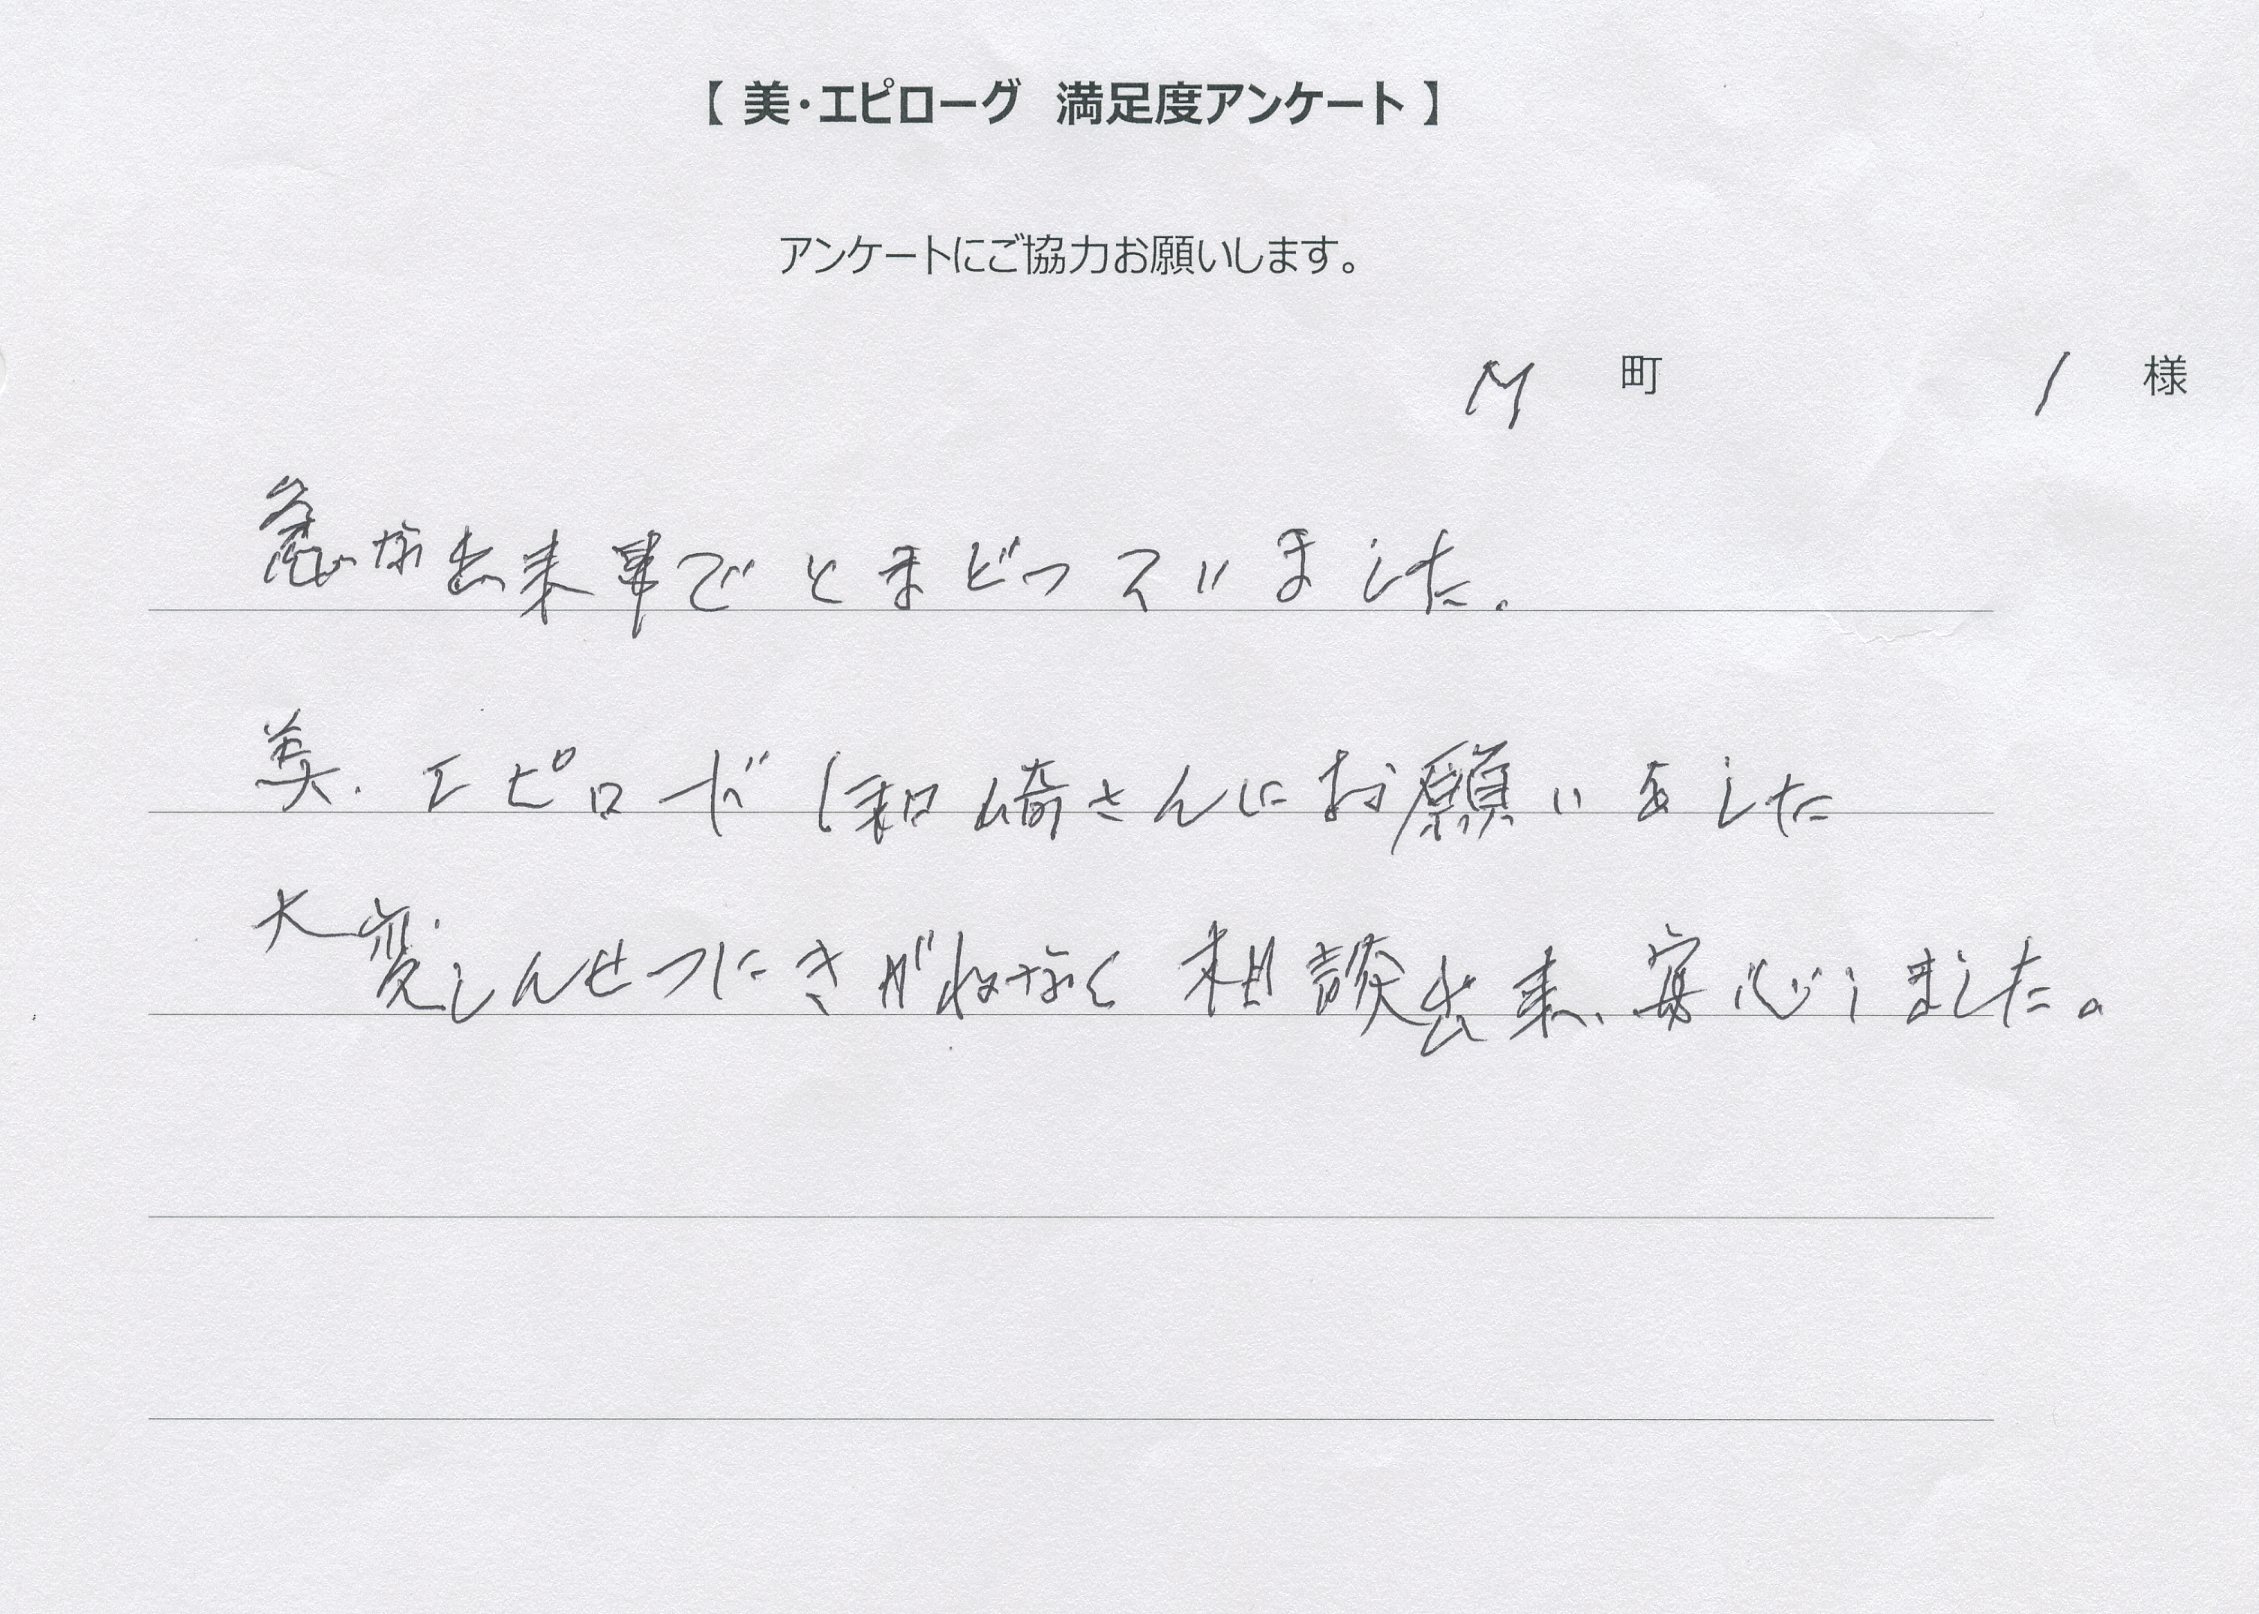 【 美・エピローグ 満足度アンケート 】
アンケートにご協力お願いします。
M 町 I 様
急な出来事でとまどっていました.
美.エピロード 和崎さんにお願いました
大変しんせつにきがねなく相談出来、安心しました。